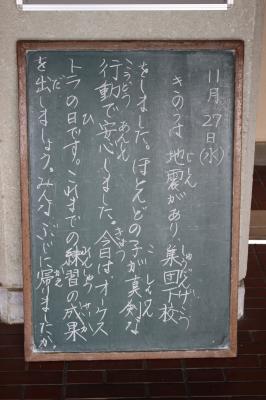 11月27日(水)
きのうは地震があり、集団下校
をしました。ほとんどの子が真剣な
行動で安心しました。今日はオーケス
トラの日です。これまでの練習の成果
を出しましょう。みんなぶじに帰りましたか。